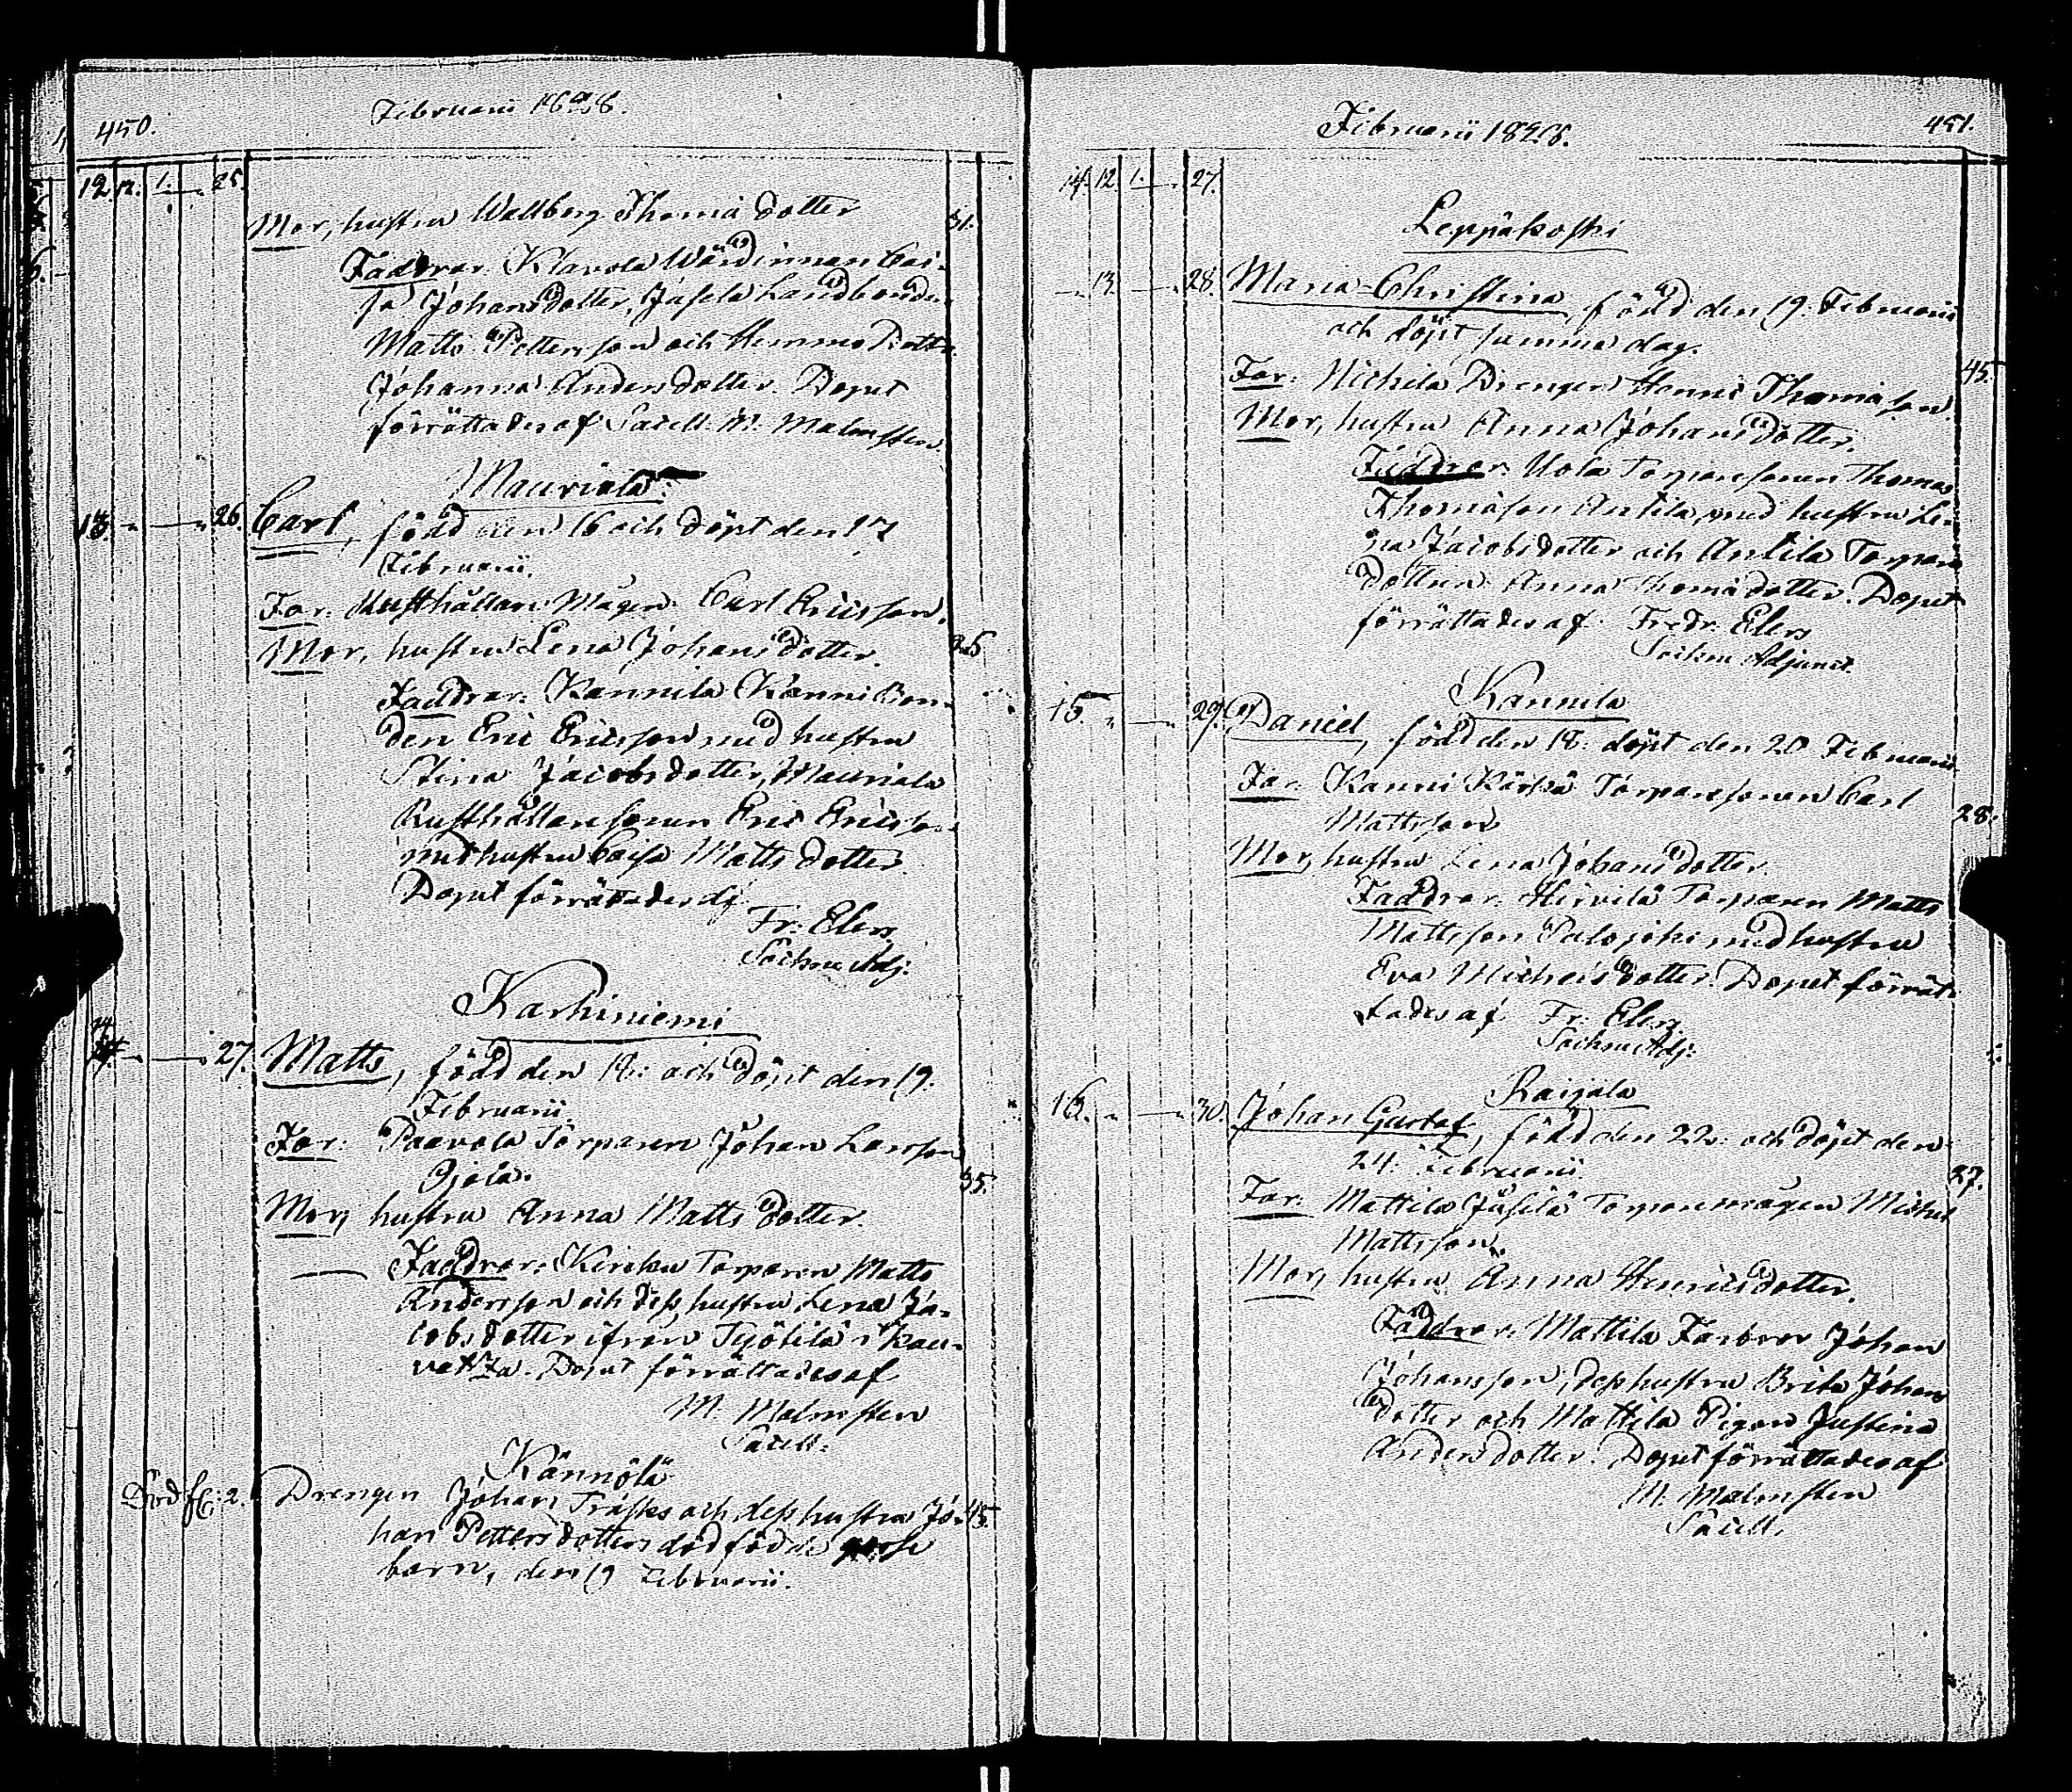 450.
Februarii 1828.
12. 12. 1. — 25.
Mor, hustru Wallberg Thomä dotter
31.
Faddrar: Klavola Wärdinnan Cai-
sa Johansdotter, Jasela Landbonden
Matts Pettersson och Hemmo Dottr.
Johanna Andersdotter. Dopet
förrättades af Sacell. M. Malmsten
Mauriala
13. " — " 26. Carl, född den 16 och döpt den 17
Februarii.
Far: Rusthållare Mågen Carl Ericsson.
Mor, hustru Lena Johansdotter.
35
Faddrar: Kannila Kanni Bon-
den Eric Ericsson med hustru
Stina Jacobsdotter, Mauriala
Rusthållaresonen Eric Ericsson
med hustru Caisa Mattsdotter.
Dopet förrättades af
Fr: Elers
Sockne Adj:
Karhiniemi
14. " — " 27. Matts, född den 18. och döpt den 19.
Februarii.
Far: Paavola Torparen Johan Larsson
Ojala.
35.
Mor, hustru Anna Mattsdotter.
Faddrar: Torparen Matts
Andersson och dess hustru Lena Ja-
cobsdotter ifrån i Kau-
vatza. Dopet förrättades af
M. Malmsten
Sacell:
Kännölä
Död f: 2. Drengen Johan Träsks och dess hustru Jo-
45.
han Pettersdotters dödfödde gosse
barn, den 19 Februarii.
Februarii 1828.
451.
14. 12. 1. — 27.
Leppäkoski
— 13. — 28. Maria Christina, född den 19. Februarii
och döpt samma dag.
Far: Drengen Thomasson
45.
Mor, hustru Anna Johansdotter.
Faddrar: Uola Torparesonen Thomas
Thomasson Antila med hustru Le-
na Jacobsdotter och Antila Torpare
dottren Anna Thomädotter. Dopet
förrättades af Fredr. Elers
Sockne Adjunct.
Kannila
15. " — " 29. Daniel, född den 18. döpt den 20 Februarii
Far: Kanni Kärpä Torparesonen Carl
Mattsson
28.
Mor, hustru Lena Johansdotter.
Faddrar: Hirvilä Torparen Matts
Mattsson Palojoki med hustru
Eva Michelsdotter. Dopet förrät-
tades af Fr: Elers
Sockne Adj:
Raijala
16. " — " 30. Johan Gustaf, född den 22. och döpt den
24. Februarii
27.
Far: Mattila Torparemågen Michel
Mattsson.
Mor, hustru Anna Henricsdotter.
Faddrar: Mattila Farbror Johan
Johansson, dess hustru Brita Johans
dotter och Mattila Pigan Justina
Andersdotter. Dopet förrättades af
M. Malmsten
Sacell.